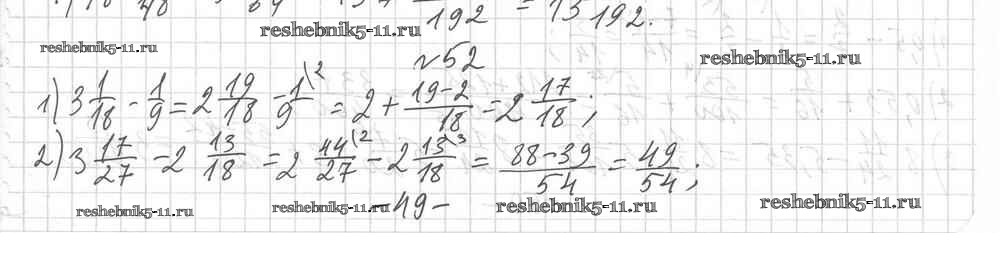 192 = 13 192.
reshebnik5-11.ru reshebnik5-11.ru reshebnik5-11.ru
№52
1) 3 1/18 - 1/9 = 2 19/18 - 1\2/9 = 2 + 19-2/18 = 2 17/18;
2) 3 17/27 - 2 13/18 = 2 44\2/27 - 2 13\3/18 = 88-39/54 = 49/54;
reshebnik5-11.ru reshebnik5-11.ru -49- reshebnik5-11.ru reshebnik5-11.ru